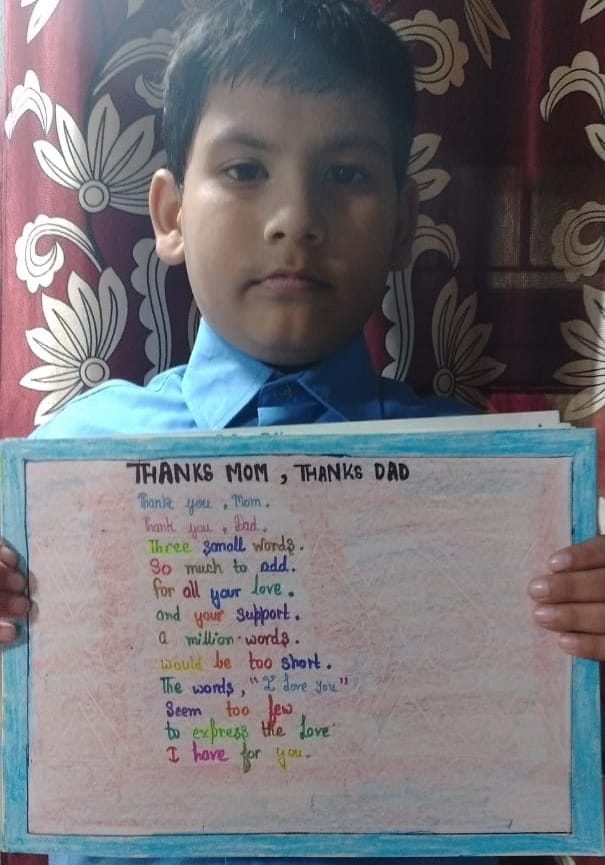 THANKS MOM, THANKS DAD
Thank you, Mom.
Thank you, Dad.
Three small words.
So much to add.
for all your love.
and your support.
a million words.
would be too short.
The words, "I love you"
Seem too few
to express the love
I have for you.